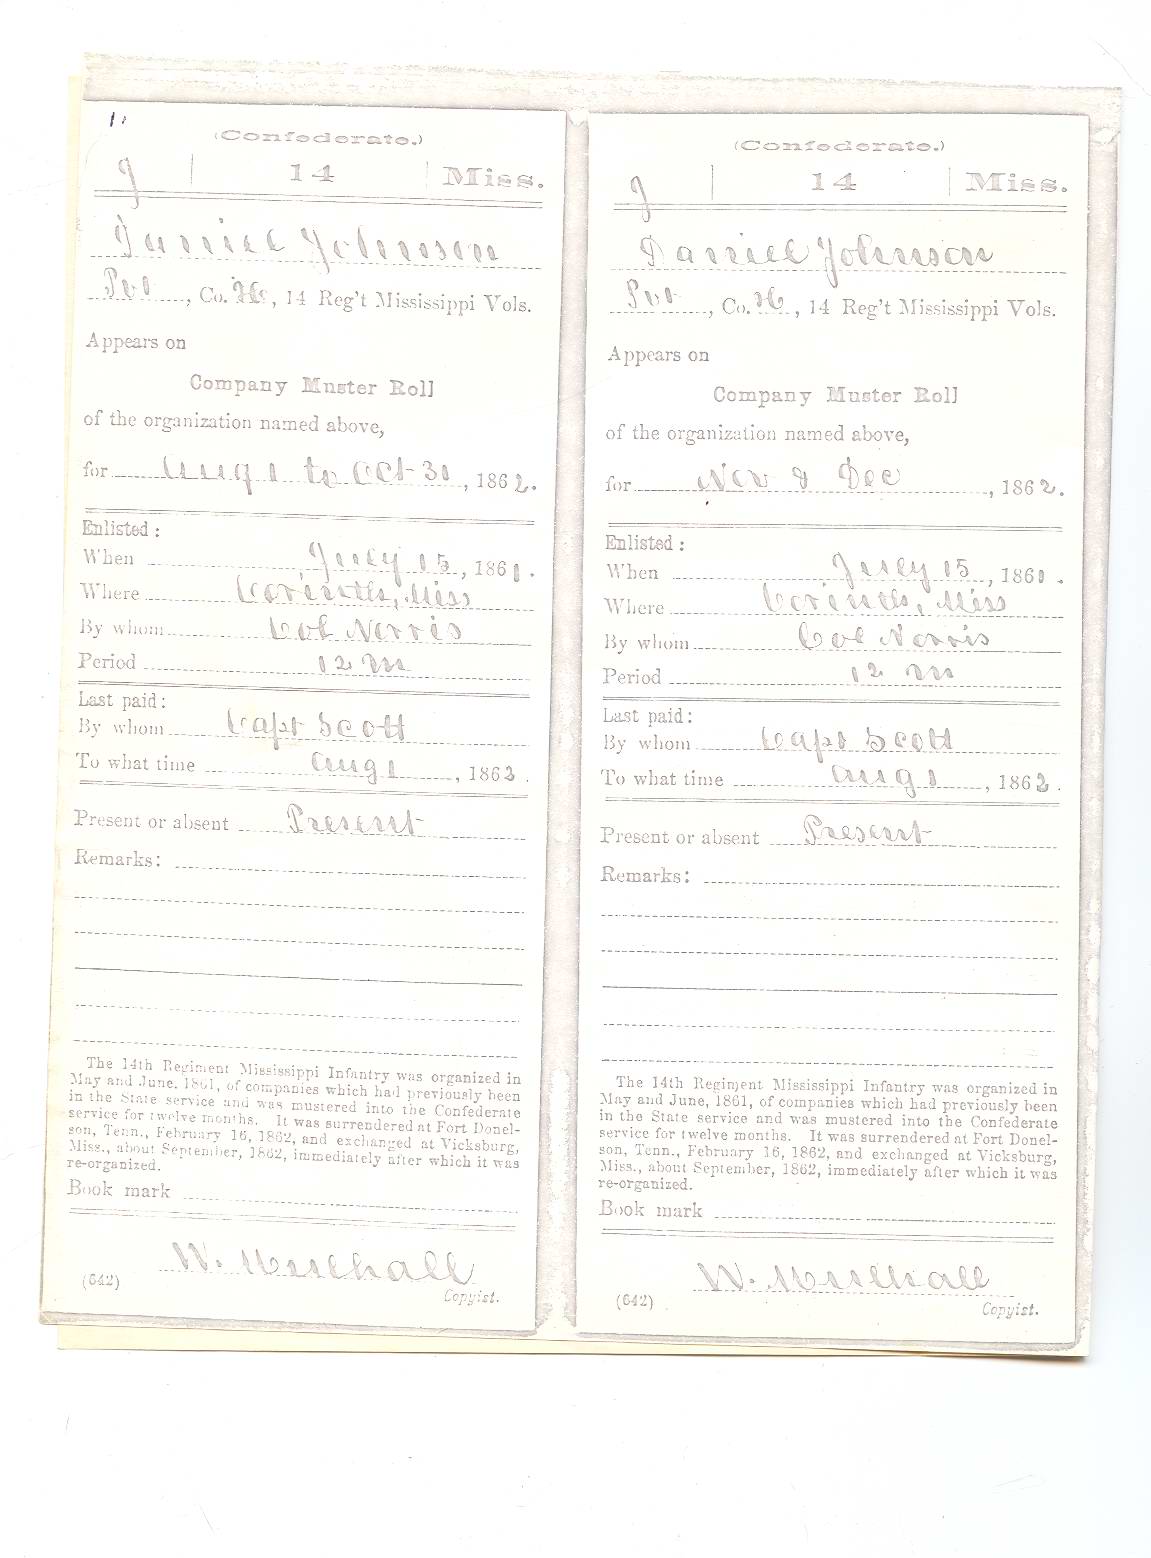 (Confederate.)
J | 14 | Miss.
Daniel Johnson
Pvt, Co. H, 14 Reg't Mississippi Vols.
Appears on
Company Muster Roll
of the organization named above,
for Aug 1 to Oct 31, 1862.
Enlisted:
When July 15, 1861.
Where Corinth, Miss
By whom Col Norris
Period 12 m
Last paid:
By whom Capt Scott
To what time Aug 1, 1862.
Present or absent Present
Remarks:
The 14th Regiment Mississippi Infantry was organized in
May and June, 1861, of companies which had previously been
in the State service and was mustered into the Confederate
service for twelve months. It was surrendered at Fort Donel-
son, Tenn., February 16, 1862, and exchanged at Vicksburg,
Miss., about September, 1862, immediately after which it was
re-organized.
Book mark
W.
(642)
Copyist.
(Confederate.)
J | 14 | Miss.
Daniel Johnson
Pvt, Co. H, 14 Reg't Mississippi Vols.
Appears on
Company Muster Roll
of the organization named above,
for Nov & Dec, 1862.
Enlisted:
When July 15, 1861.
Where Corinth, Miss
By whom Col Norris
Period 12 m
Last paid:
By whom Capt Scott
To what time Aug 1, 1862.
Present or absent Present
Remarks:
The 14th Regiment Mississippi Infantry was organized in
May and June, 1861, of companies which had previously been
in the State service and was mustered into the Confederate
service for twelve months. It was surrendered at Fort Donel-
son, Tenn., February 16, 1862, and exchanged at Vicksburg,
Miss., about September, 1862, immediately after which it was
re-organized.
Book mark
W.
(642)
Copyist.